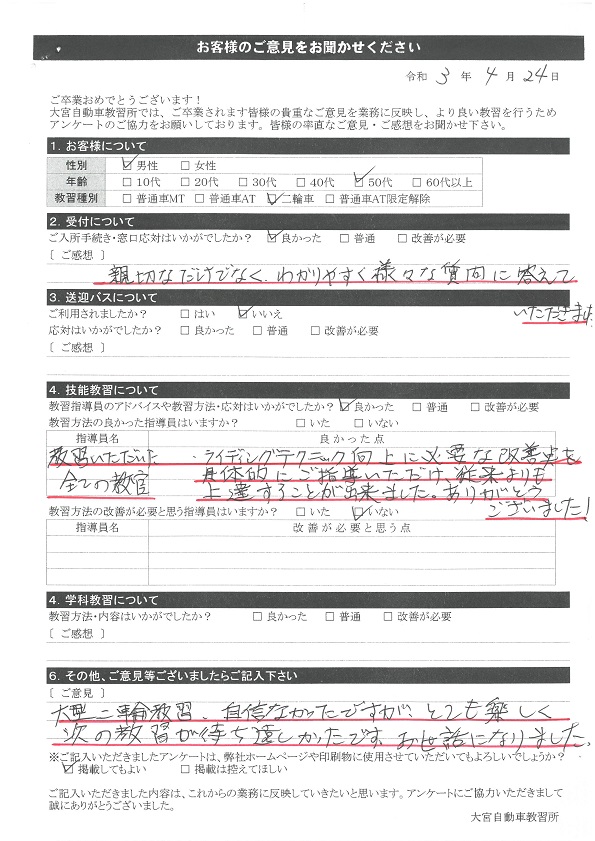 お客様のご意見をお聞かせください
令和 3 年 4 月 24 日
ご卒業おめでとうございます！
大宮自動車教習所では、ご卒業されます皆様の貴重なご意見を業務に反映し、より良い教習を行うため
アンケートのご協力をお願いしております。皆様の率直なご意見・ご感想をお聞かせ下さい。
1. お客様について
性別 ☑男性 □女性
年齢 □10代 □20代 □30代 □40代 ☑50代 □60代以上
教習種別 □普通車MT □普通車AT ☑二輪車 □普通車AT限定解除
2. 受付について
ご入所手続き・窓口応対はいかがでしたか？ ☑良かった □普通 □改善が必要
〔ご感想〕
親切なだけでなく、わかりやすく様々な質問に答えて
いただきます。
3. 送迎バスについて
ご利用されましたか？ □はい ☑いいえ
応対はいかがでしたか？ □良かった □普通 □改善が必要
〔ご感想〕
4. 技能教習について
教習指導員のアドバイスや教習方法・応対はいかがでしたか？ ☑良かった □普通 □改善が必要
教習方法の良かった指導員はいますか？ □いた □いない
指導員名 良かった点
教習いただいた ・ライディングテクニック向上に必要な改善点を
全ての教官 具体的にご指導いただけ、従来よりも
上達することが出来ました。ありがとう
ございました！
教習方法の改善が必要と思う指導員はいますか？ □いた ☑いない
指導員名 改善が必要と思う点
4. 学科教習について
教習方法・内容はいかがでしたか？ □良かった □普通 □改善が必要
〔ご感想〕
6. その他、ご意見等ございましたらご記入下さい
〔ご意見〕
大型二輪教習、自信なかったですが、とても楽しく
次の教習が待ち遠しかったです。お世話になりました。
※ご記入いただきましたアンケートは、弊社ホームページや印刷物に使用させていただいてもよろしいでしょうか？
☑掲載してもよい □掲載は控えてほしい
ご記入いただきました内容は、これからの業務に反映していきたいと思います。アンケートにご協力いただきまして
誠にありがとうございました。
大宮自動車教習所